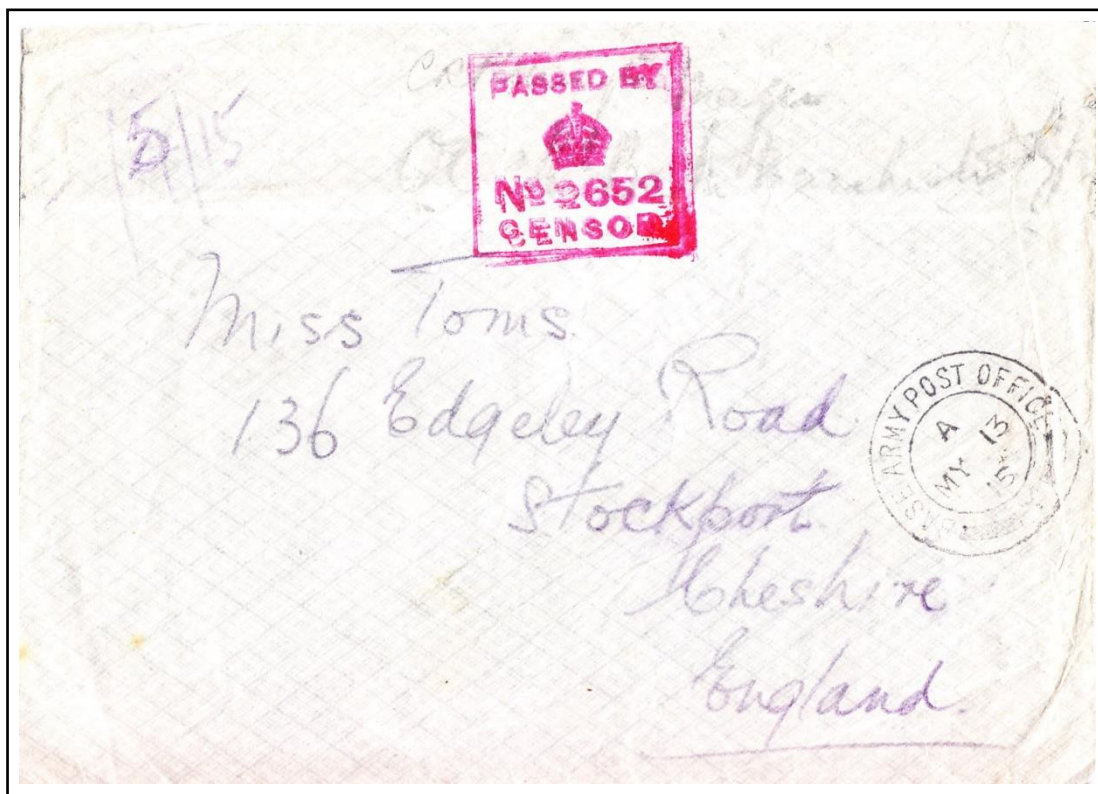 5/15
PASSED BY
No 2652
CENSOR
Miss Toms
136 Edgeley Road
Stockport
Cheshire
England.
BASE ARMY POST OFFICE
A
MY 13
15